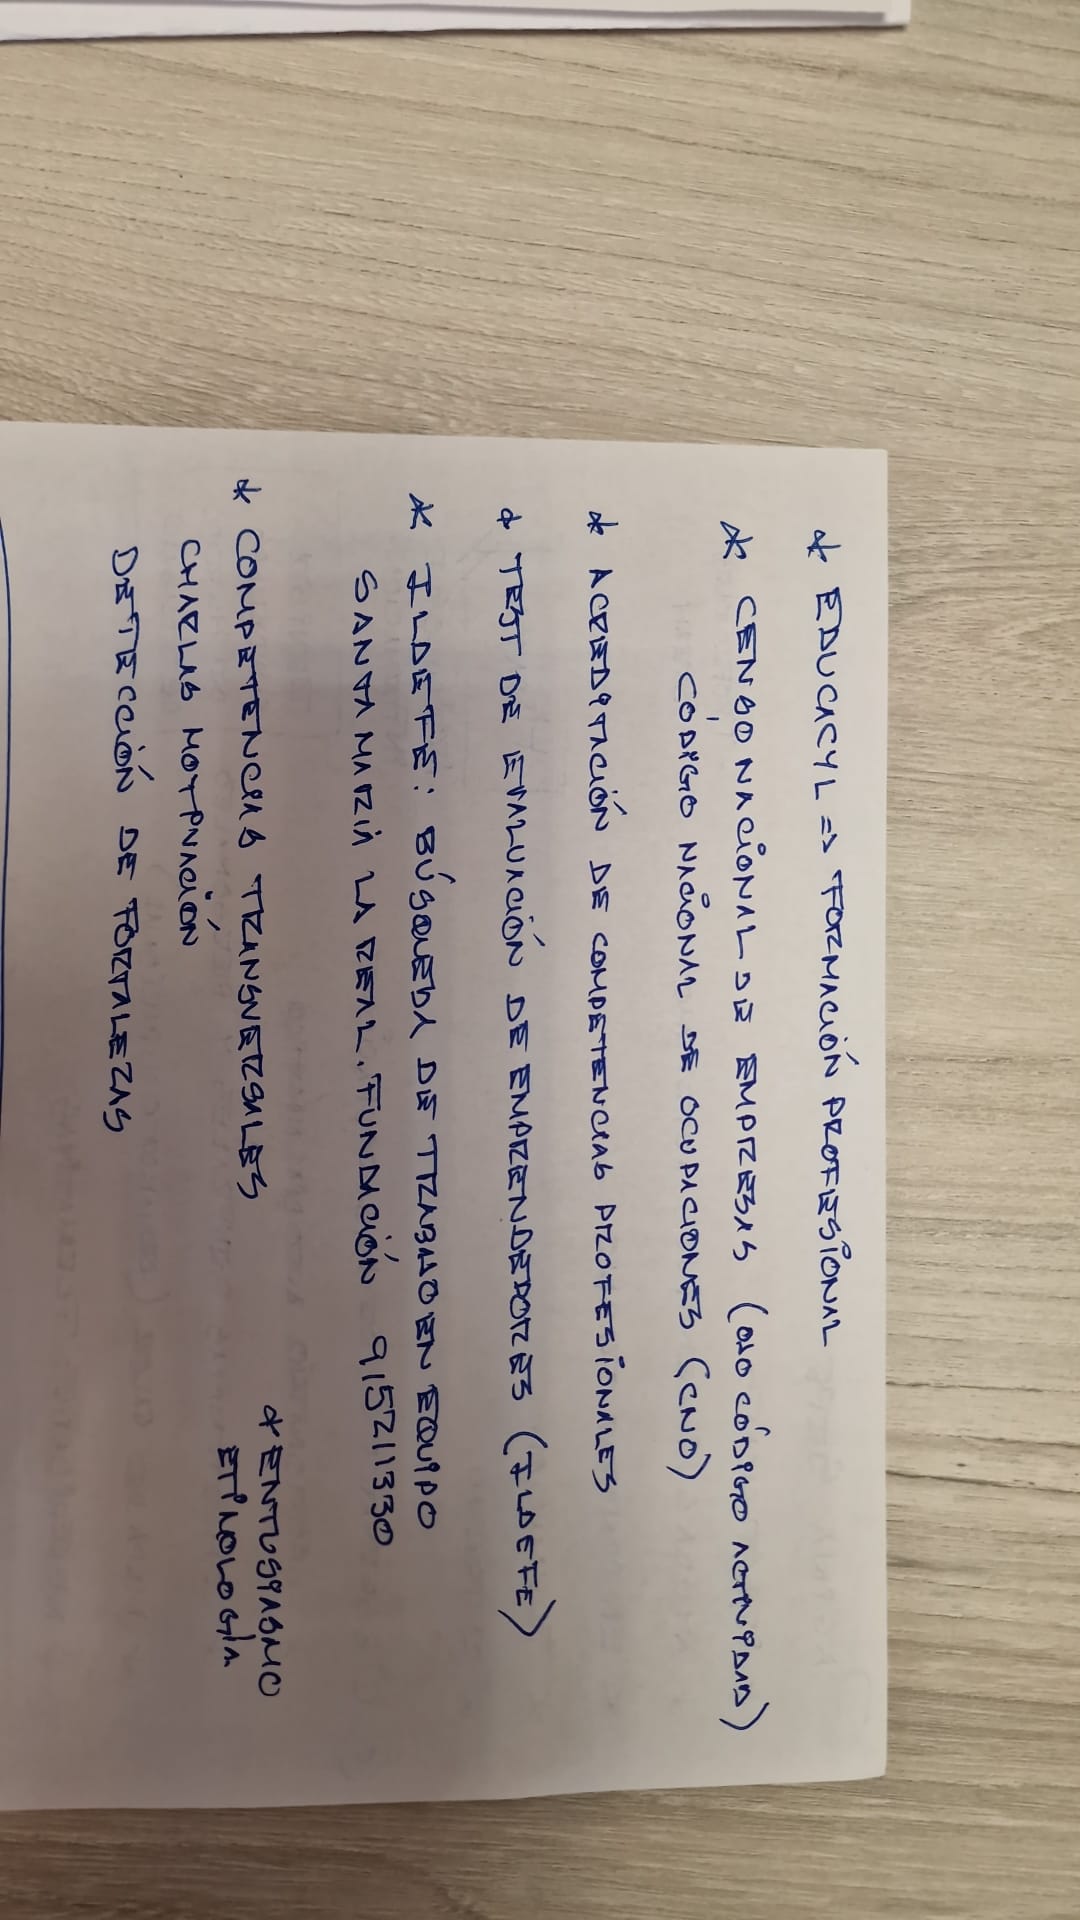 * EDUCACYL => FORMACIÓN PROFESIONAL
* CENSO NACIONAL DE EMPRESAS (OJO CÓDIGO ACTIVIDAD)
CÓDIGO NACIONAL DE OCUPACIONES (CNO)
* ACREDITACIÓN DE COMPETENCIAS PROFESIONALES
* TEST DE EVALUACIÓN DE EMPRENDEDORES (ILDEFE)
* ILDEFE: BÚSQUEDA DE TRABAJO EN EQUIPO
SANTA MARÍA LA REAL. FUNDACIÓN 915211330
* COMPETENCIAS TRANSVERSALES
CHARLAS MOTIVACIÓN
DETECCIÓN DE FORTALEZAS
* ENTUSIASMO
ETIMOLOGÍA